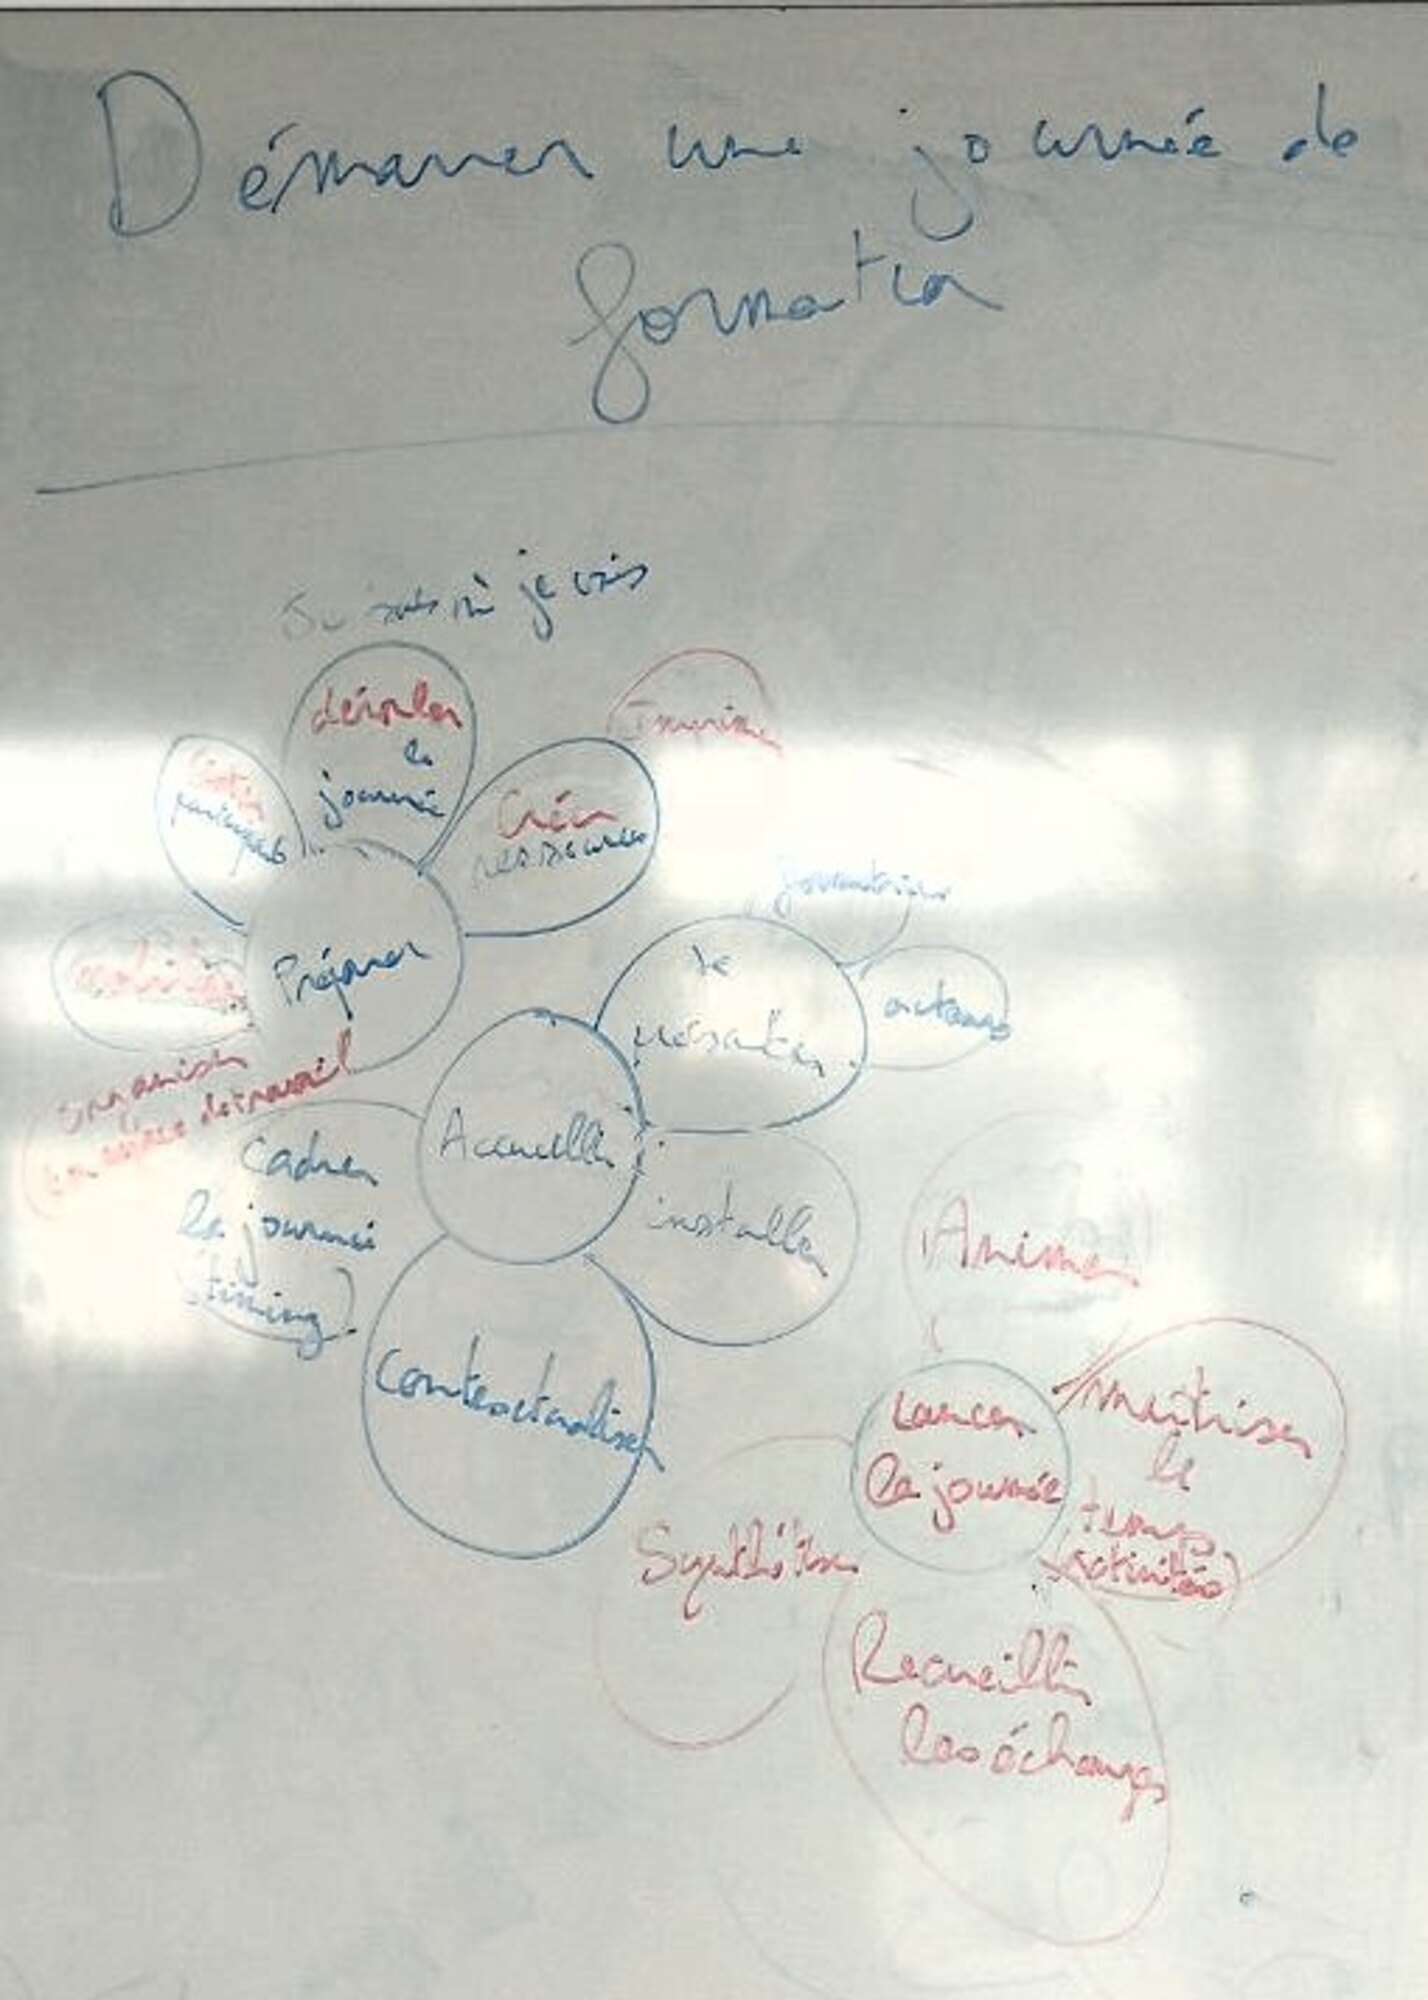 Démarrer une journée de
formation
je vais
dérouler
la
journée
Créer
ressources
Préparer
organiser
un espace de travail
se
présenter
acteurs
Accueillir
installer
Cadrer
la journée
(timing)
Contextualiser
Animer
Lancer
la journée
maîtriser
le
temps
(activités)
Synthétiser
Recueillir
les échanges